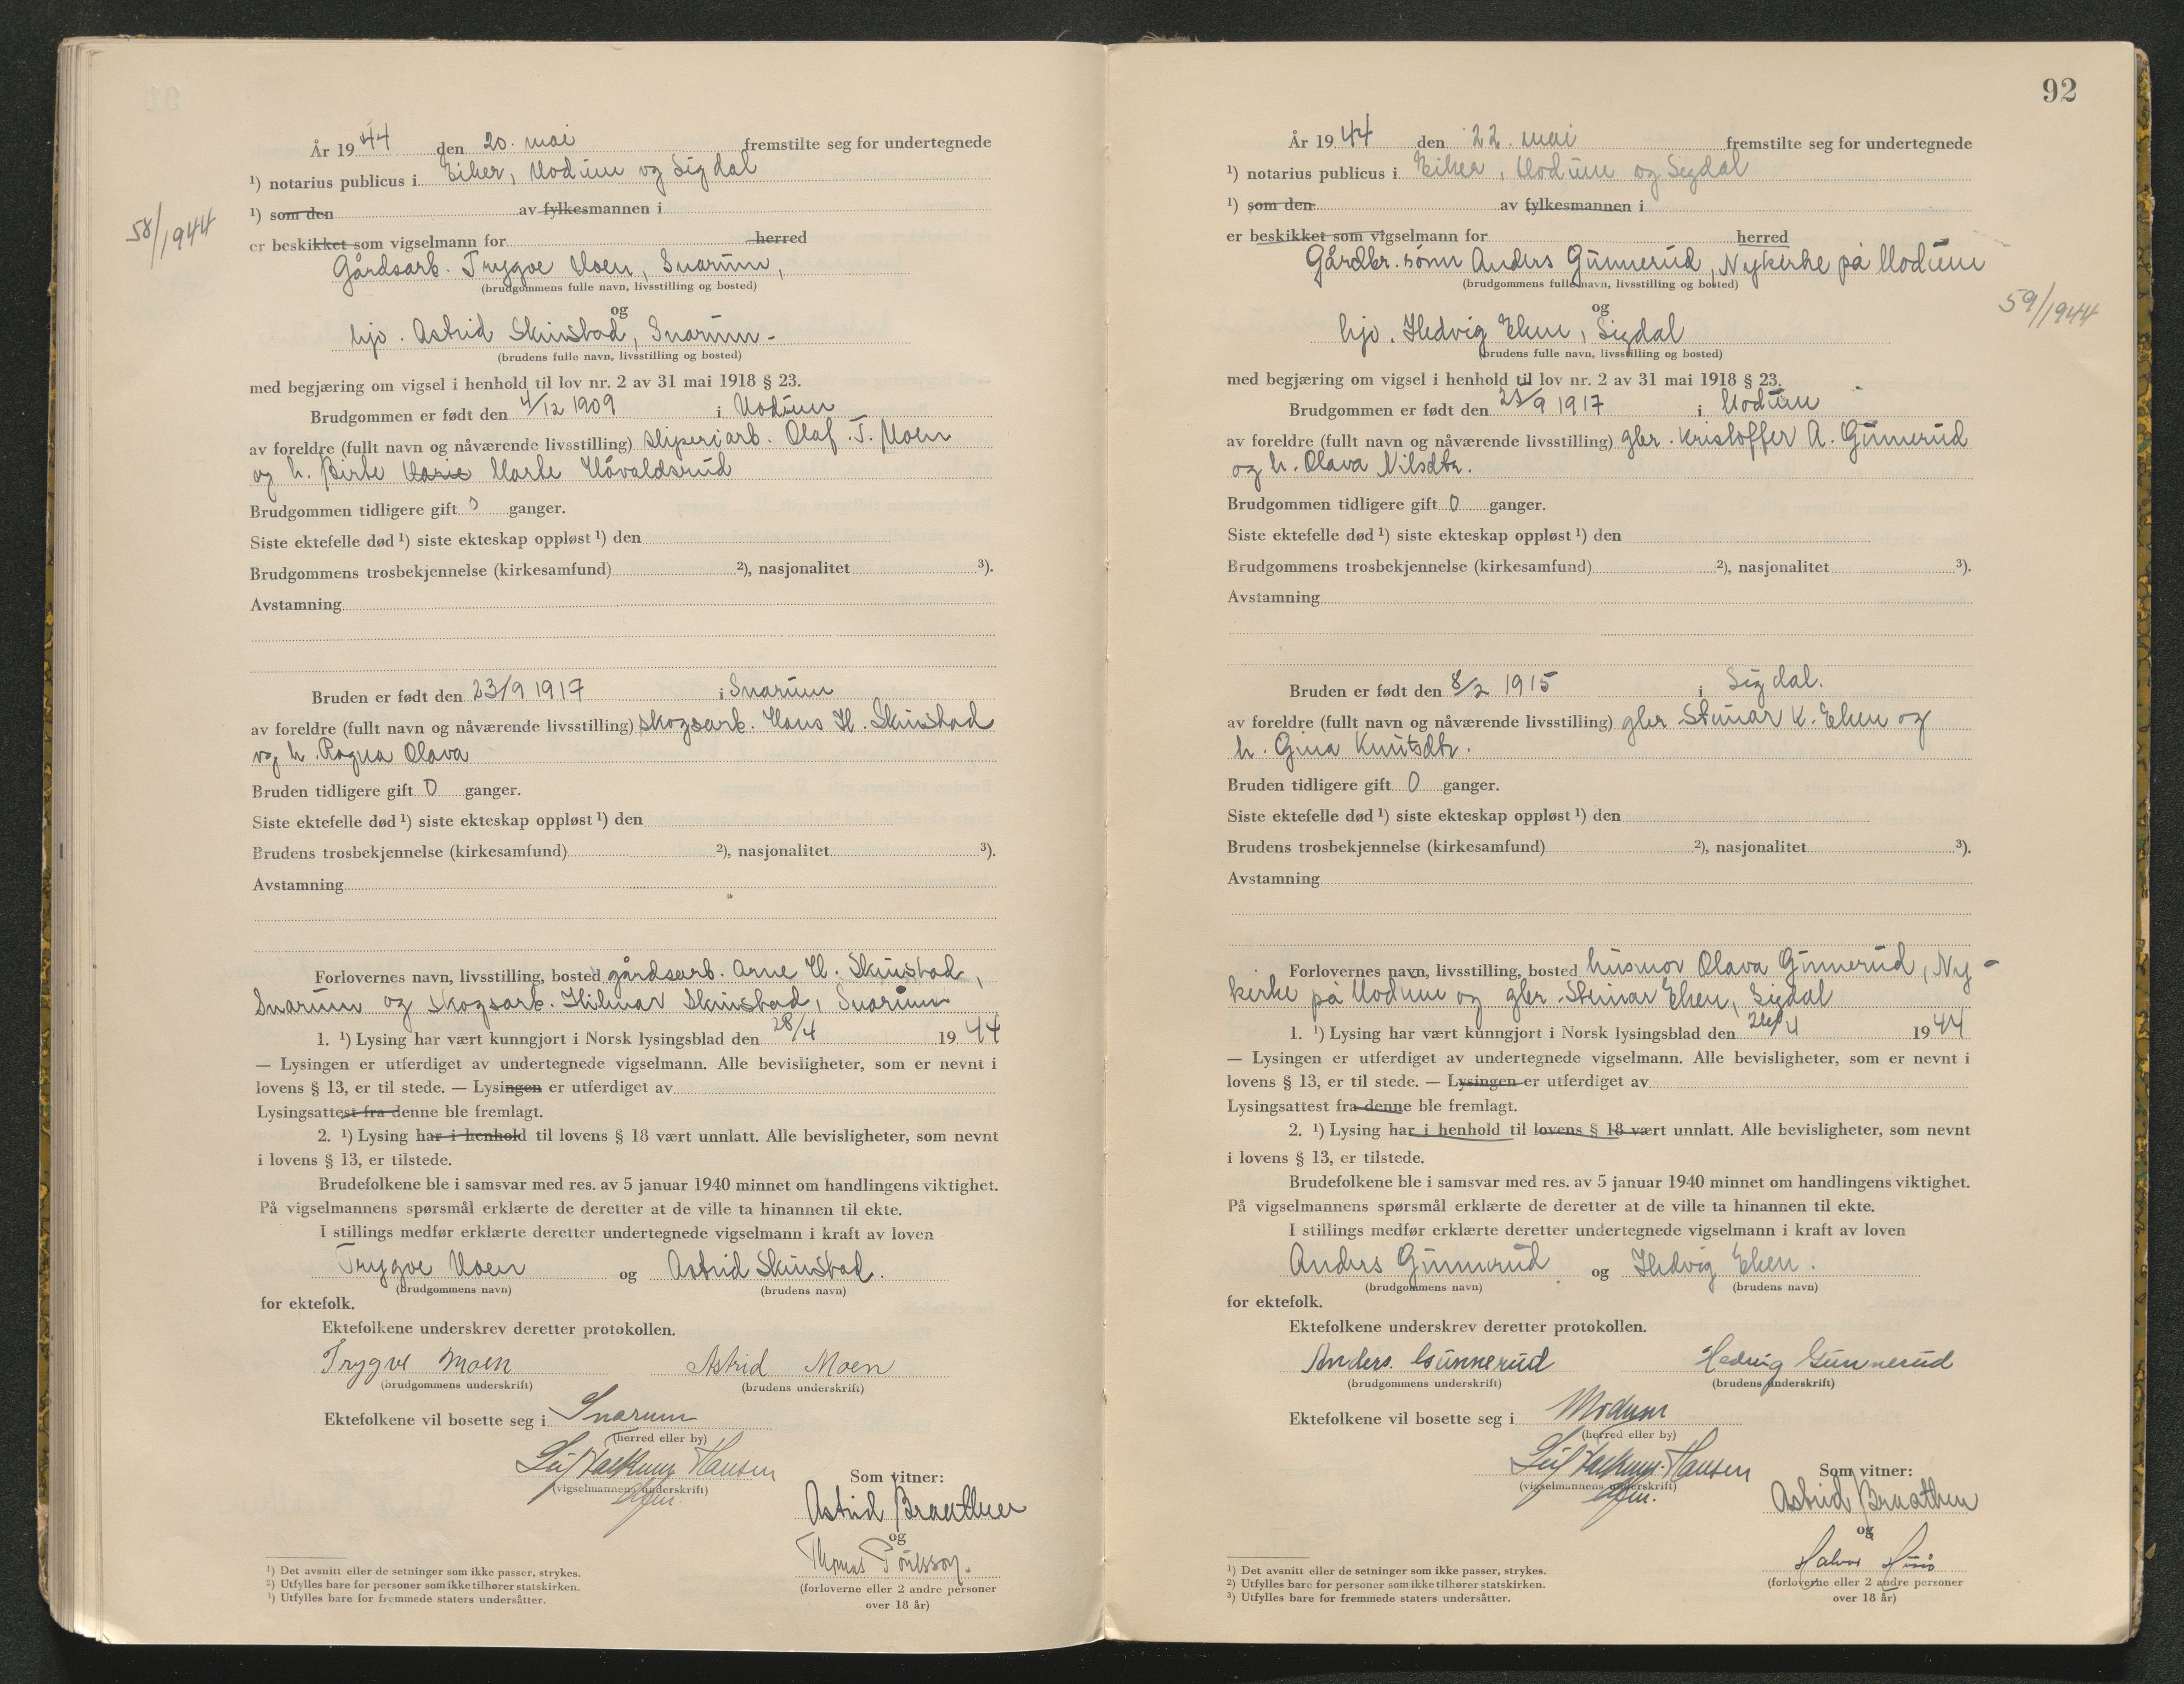 År 1944 den 20. mai fremstilte seg for undertegnede
¹) notarius publicus i Eiker, Modum og Sigdal
¹) som den av fylkesmannen i
58/1944
er beskikket som vigselmann for herred
Gårdsarb. Trygve Moen, Snarum,
(brudgommens fulle navn, livsstilling og bosted)
og
hjv. Astrid Skinstad, Snarum.
(brudens fulle navn, livsstilling og bosted)
med begjæring om vigsel i henhold til lov nr. 2 av 31 mai 1918 § 23.
Brudgommen er født den 4/12 1909 i Modum
av foreldre (fullt navn og nåværende livsstilling) sliperiarb. Olaf T. Moen
og h. Birte Marie Marte Håvaldsrud
Brudgommen tidligere gift 0 ganger.
Siste ektefelle død ¹) siste ekteskap oppløst ¹) den
Brudgommens trosbekjennelse (kirkesamfund) ²), nasjonalitet ³).
Avstamning
Bruden er født den 23/9 1917 i Snarum
av foreldre (fullt navn og nåværende livsstilling) skogsarb. Hans H. Skinstad
og h. Ragna Olava
Bruden tidligere gift 0 ganger.
Siste ektefelle død ¹) siste ekteskap oppløst ¹) den
Brudens trosbekjennelse (kirkesamfund) ²), nasjonalitet ³).
Avstamning
Forlovernes navn, livsstilling, bosted gårdsarb. Arne H. Skinstad,
Snarum og skogsarb. Hilmar Skinstad, Snarum
1. ¹) Lysing har vært kunngjort i Norsk lysingsblad den 28/4 1944
— Lysingen er utferdiget av undertegnede vigselmann. Alle bevisligheter, som er nevnt i
lovens § 13, er til stede. — Lysingen er utferdiget av
Lysingsattest fra denne ble fremlagt.
2. ¹) Lysing har i henhold til lovens § 18 vært unnlatt. Alle bevisligheter, som nevnt
i lovens § 13, er tilstede.
Brudefolkene ble i samsvar med res. av 5 januar 1940 minnet om handlingens viktighet.
På vigselmannens spørsmål erklærte de deretter at de ville ta hinannen til ekte.
I stillings medfør erklærte deretter undertegnede vigselmann i kraft av loven
Trygve Moen og Astrid Skinstad.
(Brudgommens navn) (brudens navn)
for ektefolk.
Ektefolkene underskrev deretter protokollen.
Trygve Moen Astrid Moen
(brudgommens underskrift) (brudens underskrift)
Ektefolkene vil bosette seg i Snarum
(herred eller by)
Leif Hansen
(vigselmannens underskrift)
Som vitner:
Astrid Braathen
og
Thomas Poulsson.
(forloverne eller 2 andre personer
over 18 år)
¹) Det avsnitt eller de setninger som ikke passer, strykes.
²) Utfylles bare for personer som ikke tilhører statskirken.
³) Utfylles bare for fremmede staters undersåtter.
92
År 1944 den 22. mai fremstilte seg for undertegnede
¹) notarius publicus i Eiker, Modum og Sigdal
¹) som den av fylkesmannen i
er beskikket som vigselmann for herred
Gårdbr. sønn Anders Gunnerud, Nykirke på Modum
(brudgommens fulle navn, livsstilling og bosted)
59/1944
og
hjv. Hedvig Eken, Sigdal
(brudens fulle navn, livsstilling og bosted)
med begjæring om vigsel i henhold til lov nr. 2 av 31 mai 1918 § 23.
Brudgommen er født den /9 1917 i Modum
av foreldre (fullt navn og nåværende livsstilling) gbr. Kristoffer A. Gunnerud
og h. Olava Nilsdtr.
Brudgommen tidligere gift 0 ganger.
Siste ektefelle død ¹) siste ekteskap oppløst ¹) den
Brudgommens trosbekjennelse (kirkesamfund) ²), nasjonalitet ³).
Avstamning
Bruden er født den 8/2 1915 i Sigdal.
av foreldre (fullt navn og nåværende livsstilling) gbr Steinar K. Eken og
h. Gina Knutsdtr.
Bruden tidligere gift 0 ganger.
Siste ektefelle død ¹) siste ekteskap oppløst ¹) den
Brudens trosbekjennelse (kirkesamfund) ²), nasjonalitet ³).
Avstamning
Forlovernes navn, livsstilling, bosted husmor Olava Gunnerud, Ny-
kirke på Modum og gbr. Steinar Eken, Sigdal
1. ¹) Lysing har vært kunngjort i Norsk lysingsblad den /4 1944
— Lysingen er utferdiget av undertegnede vigselmann. Alle bevisligheter, som er nevnt i
lovens § 13, er til stede. — Lysingen er utferdiget av
Lysingsattest fra denne ble fremlagt.
2. ¹) Lysing har i henhold til lovens § 18 vært unnlatt. Alle bevisligheter, som nevnt
i lovens § 13, er tilstede.
Brudefolkene ble i samsvar med res. av 5 januar 1940 minnet om handlingens viktighet.
På vigselmannens spørsmål erklærte de deretter at de ville ta hinannen til ekte.
I stillings medfør erklærte deretter undertegnede vigselmann i kraft av loven
Anders Gunnerud og Hedvig Eken.
(brudgommens navn) (brudens navn)
for ektefolk.
Ektefolkene underskrev deretter protokollen.
Anders. Gunnerud Hedvig Gunnerud
(brudgommens underskrift) (brudens underskrift)
Ektefolkene vil bosette seg i Modum
(herred eller by)
Leif Hansen
(vigselmannens underskrift)
Som vitner:
Astrid Braathen
og
Halvor
(forloverne eller 2 andre personer
over 18 år)
¹) Det avsnitt eller de setninger som ikke passer, strykes.
²) Utfylles bare for personer som ikke tilhører statskirken.
³) Utfylles bare for fremmede staters undersåtter.